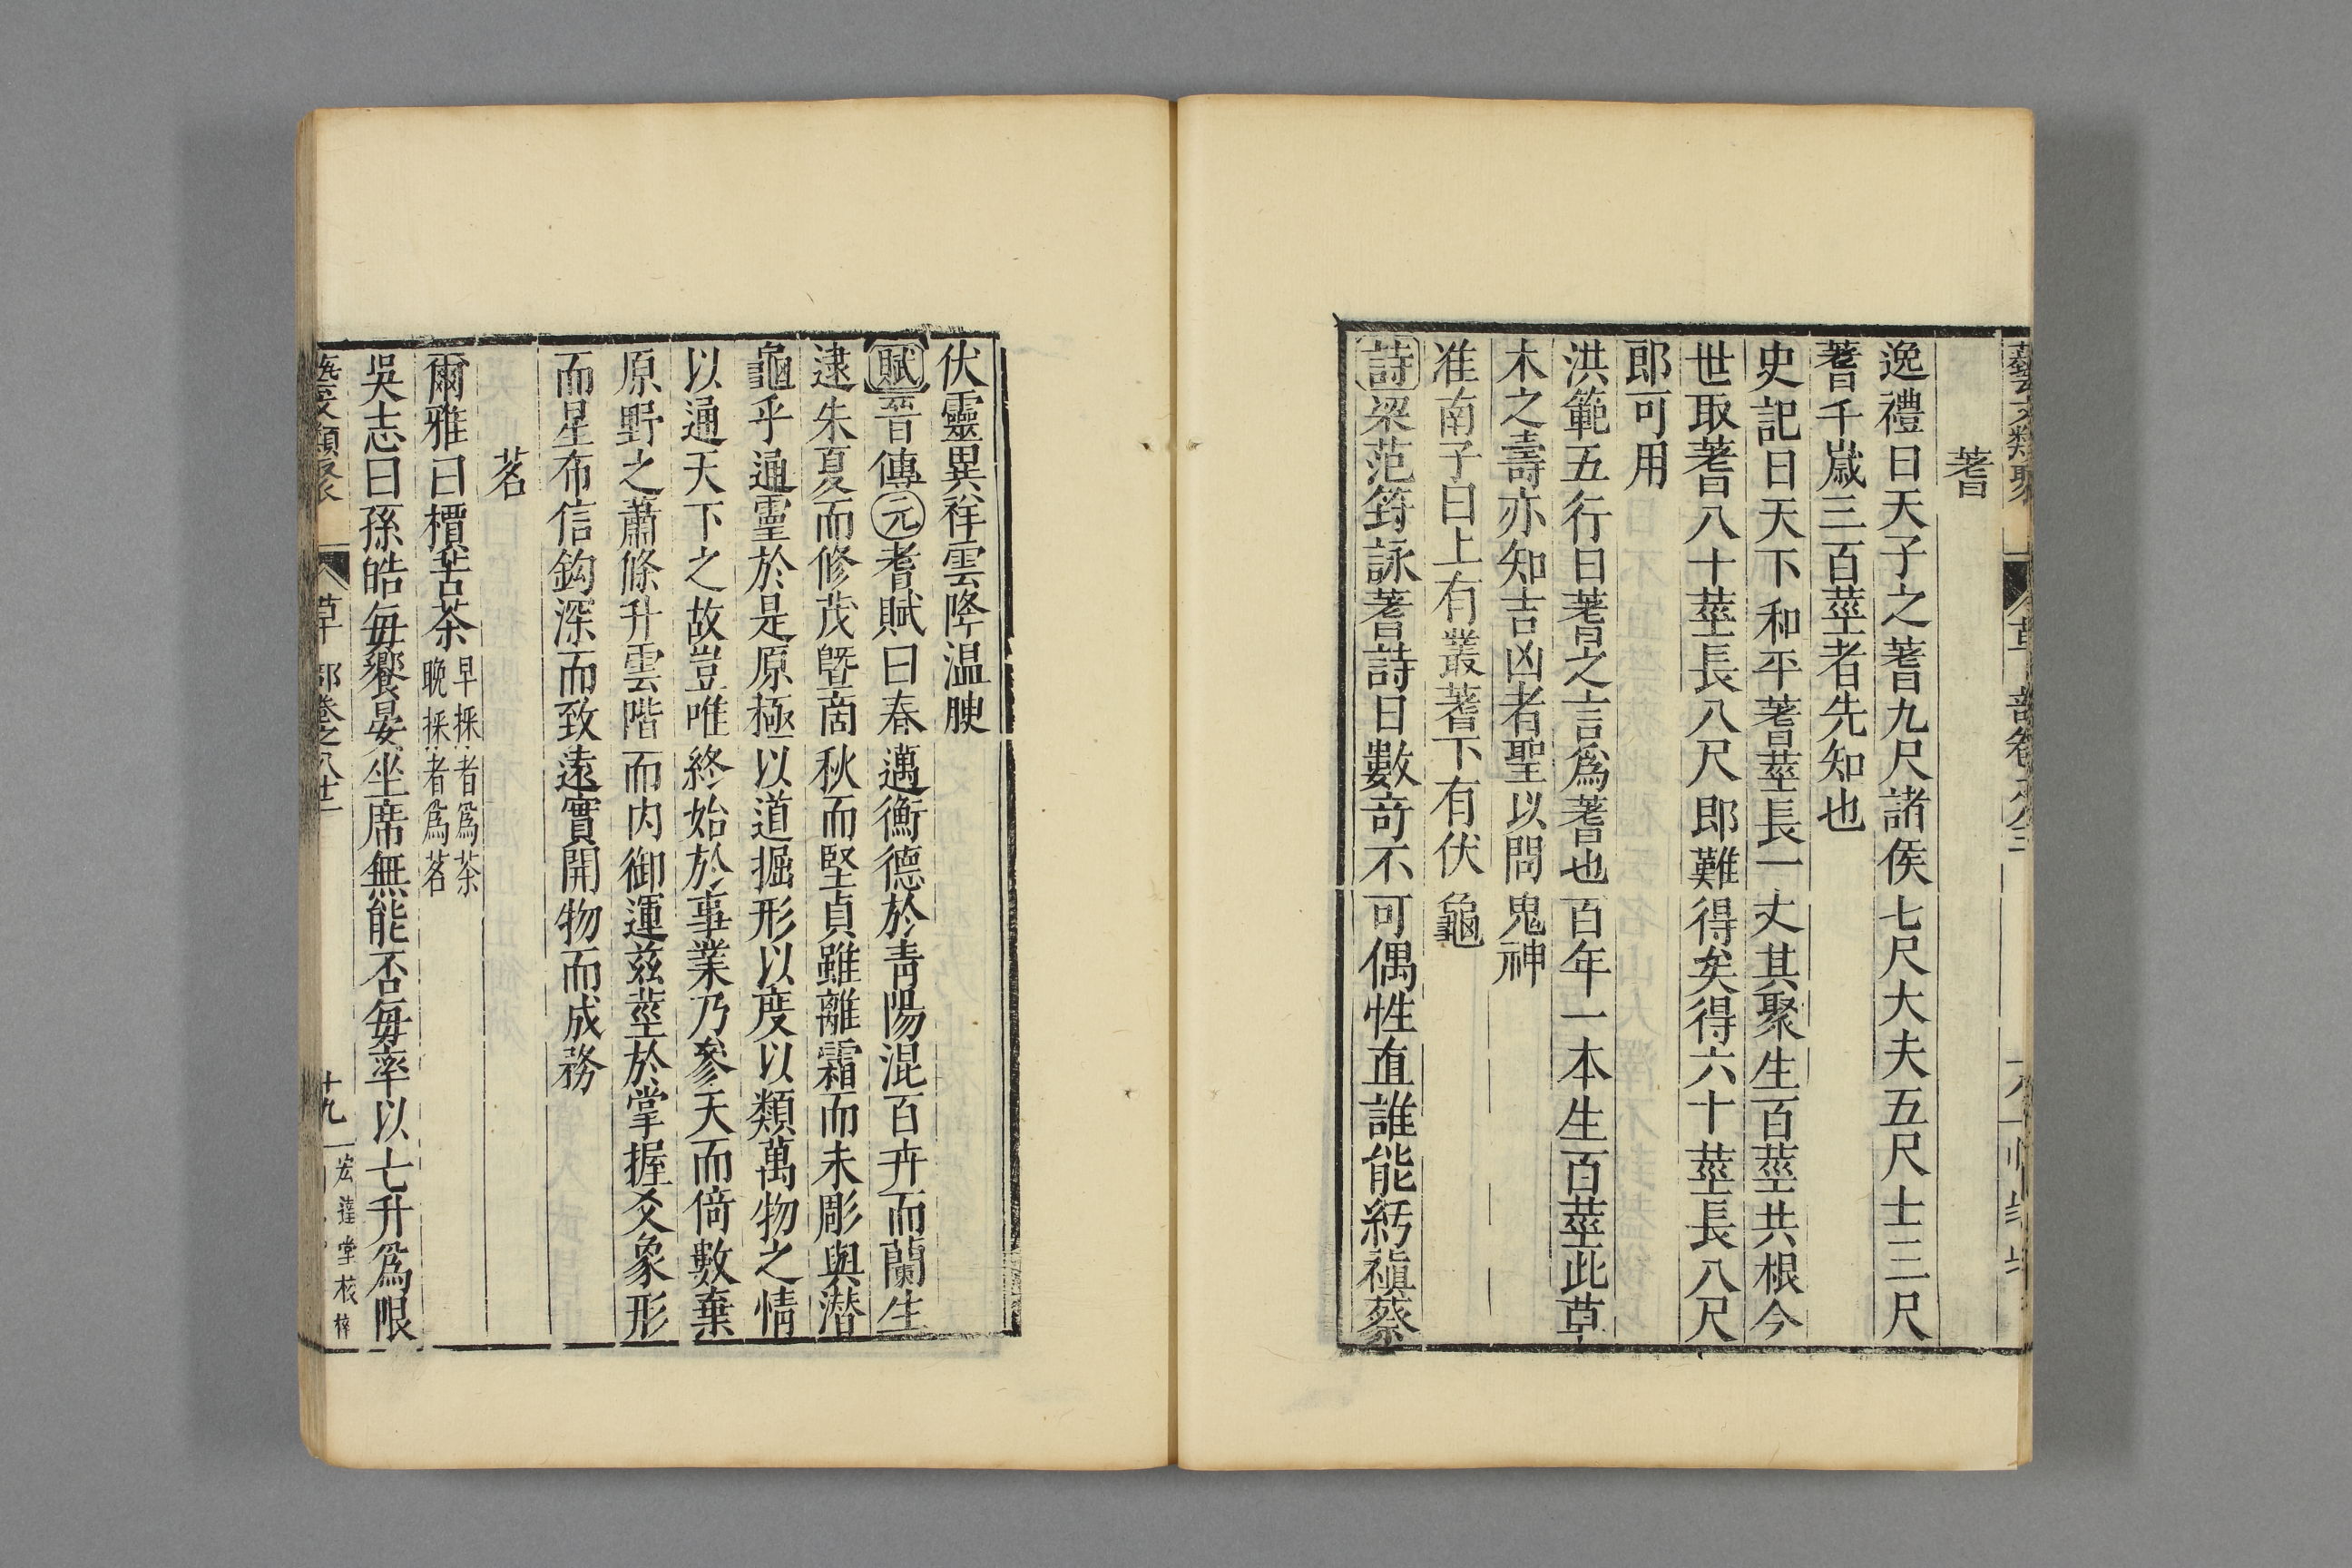 蓍
逸禮曰天子之蓍九尺諸侯七尺大夫五尺士三尺
蓍千嵗三百莖者先知也
史記曰天下和平蓍莖長一丈其聚生百莖共根今
世取蓍八十莖長八尺郎難得矣得六十莖長八尺
郎可用
洪範五行曰蓍之言爲蓍也百年一本生百莖此草
木之壽亦知吉凶者聖以問鬼神
准南子曰上有叢蓍下有伏龜
詩梁范筠詠蓍詩曰數奇不可偶性直誰能紆禎蔡
伏靈異祥雲降温腴
賦晉傳元蓍賦曰春邁衡德於青陽混百卉而蘭生
逮朱夏而修茂曁商秋而堅貞雖離霜而未彫與潜
龜乎通靈於是原極以道掘形以度以類萬物之情
以通天下之故豈唯終始於事業乃參天而倚數棄
原野之蕭條升雲階而内御運兹莖於掌握爻象形
而星布信鈎深而致遠實開物而成務
茗
爾雅曰檟苦茶早採者爲茶晚採者爲茗
吳志曰孫皓毎饗晏坐席無能否毎率以七升爲限
草部卷之八十二
十九
宏達堂校梓